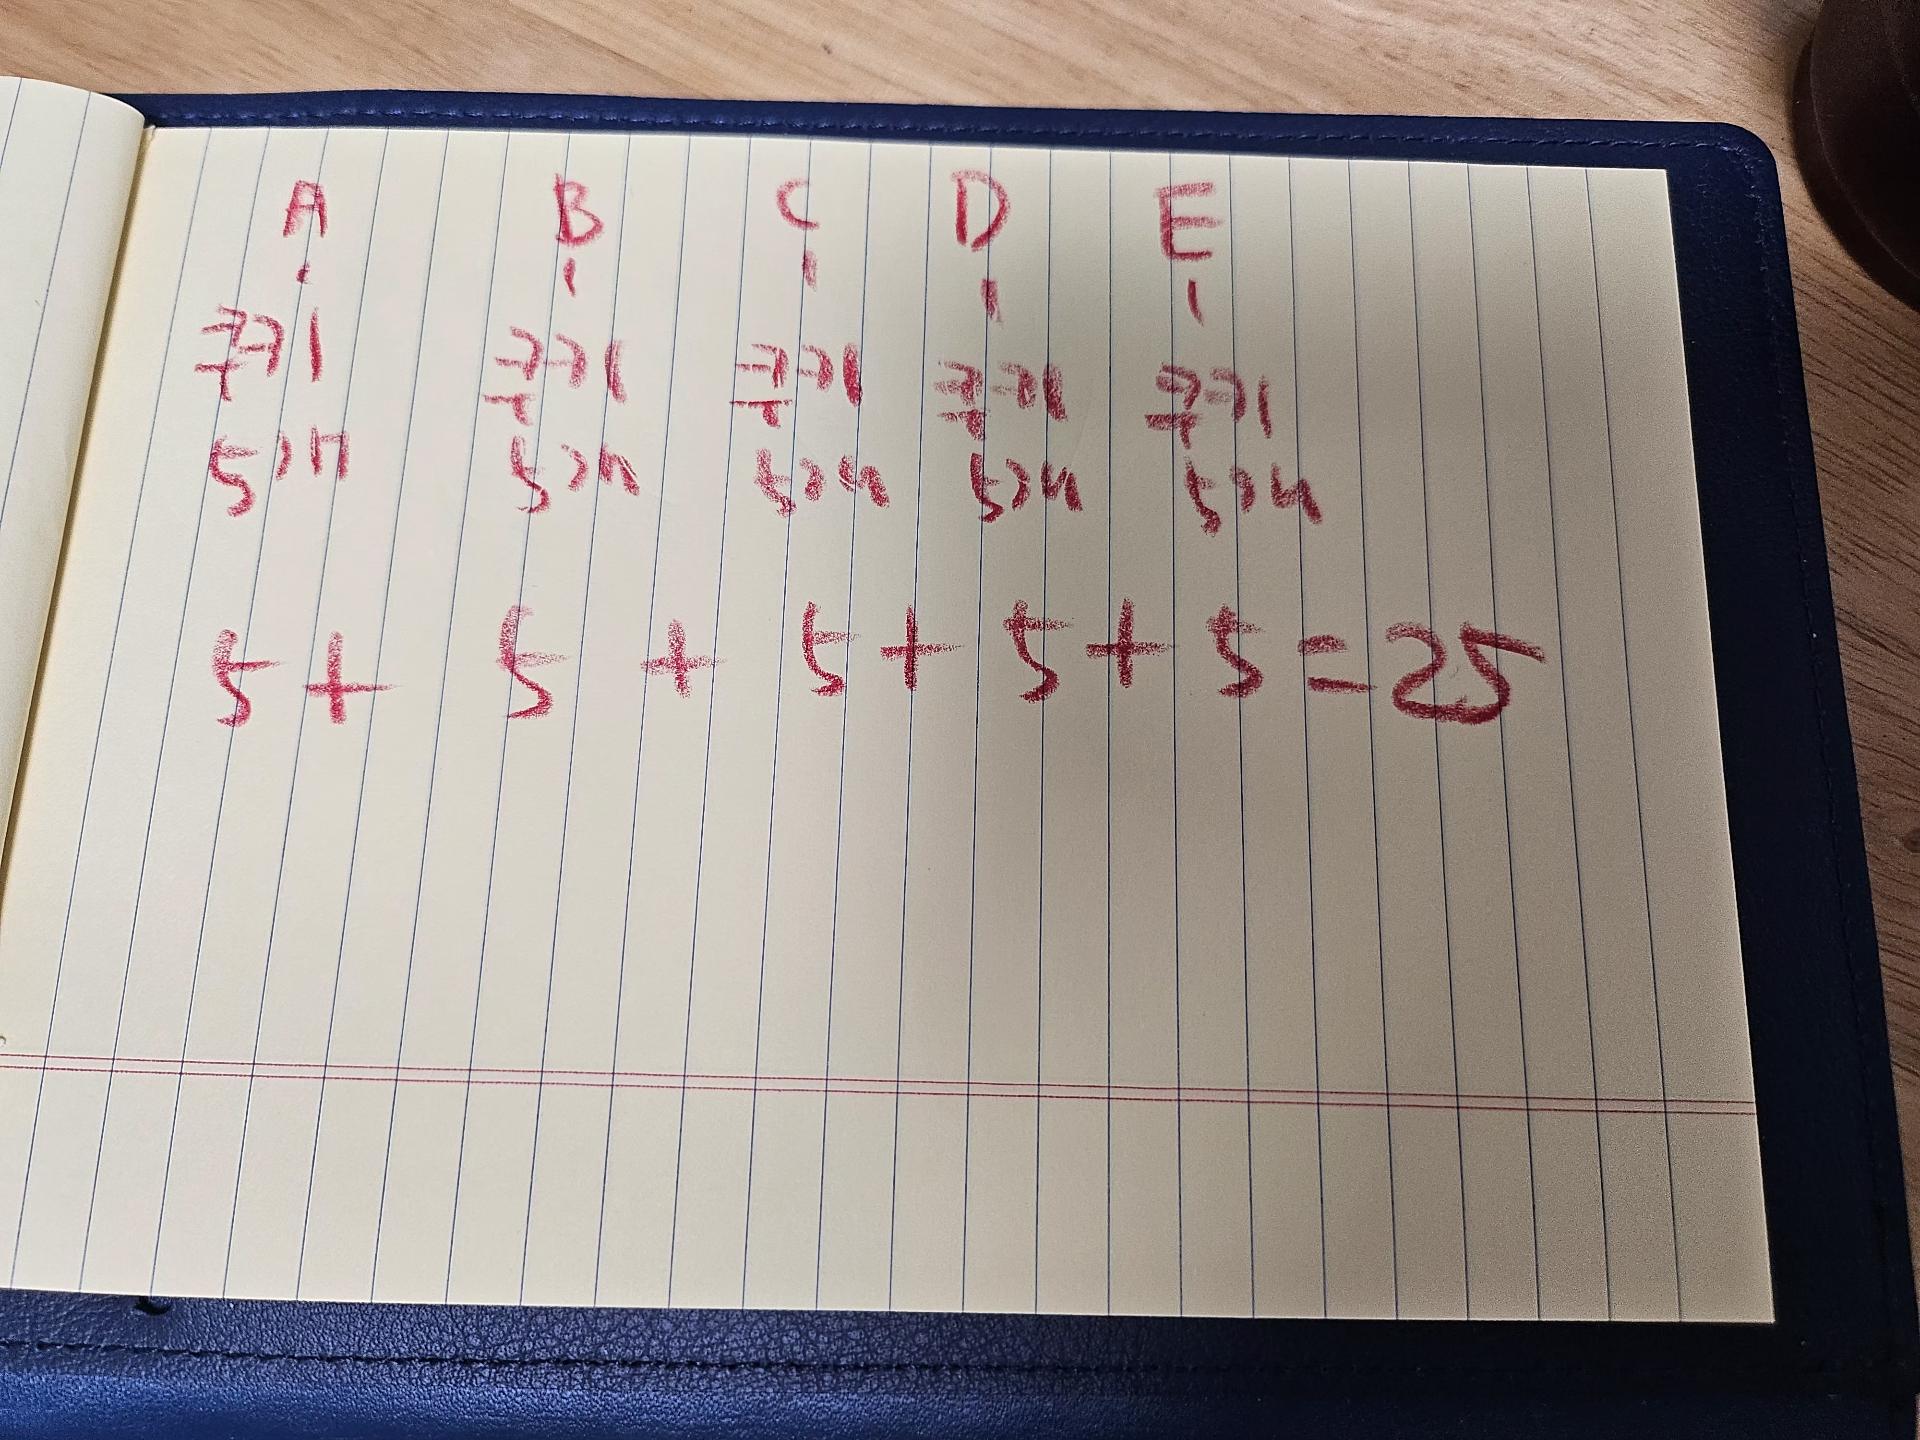 A B C D E
쿠키 쿠키 쿠키 쿠키 쿠키
5개 5개 5개 5개 5개
5 + 5 + 5 + 5 + 5 = 25